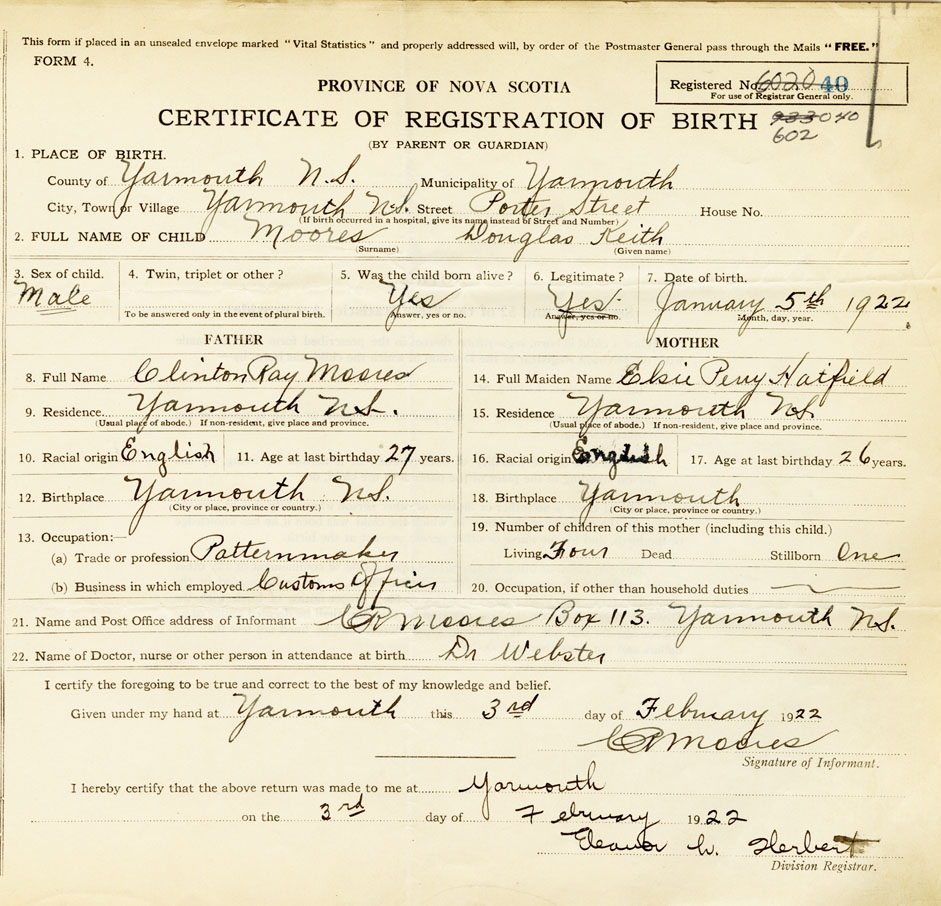 This form if placed in an unsealed envelope marked "Vital Statistics" and properly addressed will, by order of the Postmaster General pass through the Mails "FREE."
FORM 4.
PROVINCE OF NOVA SCOTIA
Registered No. 6020 40
For use of Registrar General only.
CERTIFICATE OF REGISTRATION OF BIRTH 933 040
602
(BY PARENT OR GUARDIAN)
1. PLACE OF BIRTH.
County of Yarmouth N.S. Municipality of Yarmouth
City, Town or Village Yarmouth N.S. Street Porter Street House No.
(If birth occurred in a hospital, give its name instead of Street and Number)
2. FULL NAME OF CHILD Moores Douglas Keith
(Surname) (Given name)
3. Sex of child. 4. Twin, triplet or other? 5. Was the child born alive? 6. Legitimate? 7. Date of birth.
Male Yes Yes. January 5th 1922
To be answered only in the event of plural birth. Answer, yes or no. Answer, yes or no. Month, day, year.
FATHER MOTHER
8. Full Name Clinton Ray Moores 14. Full Maiden Name Elsie Perry Hatfield
9. Residence Yarmouth N.S. 15. Residence Yarmouth N.S.
(Usual place of abode.) If non-resident, give place and province. (Usual place of abode.) If non-resident, give place and province.
10. Racial origin English 11. Age at last birthday 27 years. 16. Racial origin English 17. Age at last birthday 26 years.
12. Birthplace Yarmouth N.S. 18. Birthplace Yarmouth
(City or place, province or country.) (City or place, province or country.)
19. Number of children of this mother (including this child.)
13. Occupation:—
(a) Trade or profession Patternmaker Living Four Dead Stillborn One
(b) Business in which employed Customs Officer 20. Occupation, if other than household duties
21. Name and Post Office address of Informant C R Moores Box 113. Yarmouth N.S.
22. Name of Doctor, nurse or other person in attendance at birth Dr Webster
I certify the foregoing to be true and correct to the best of my knowledge and belief.
Given under my hand at Yarmouth this 3rd day of February 1922
C R Moores
Signature of Informant.
I hereby certify that the above return was made to me at Yarmouth
on the 3rd day of February 1922
Eleanor W. Herbert
Division Registrar.